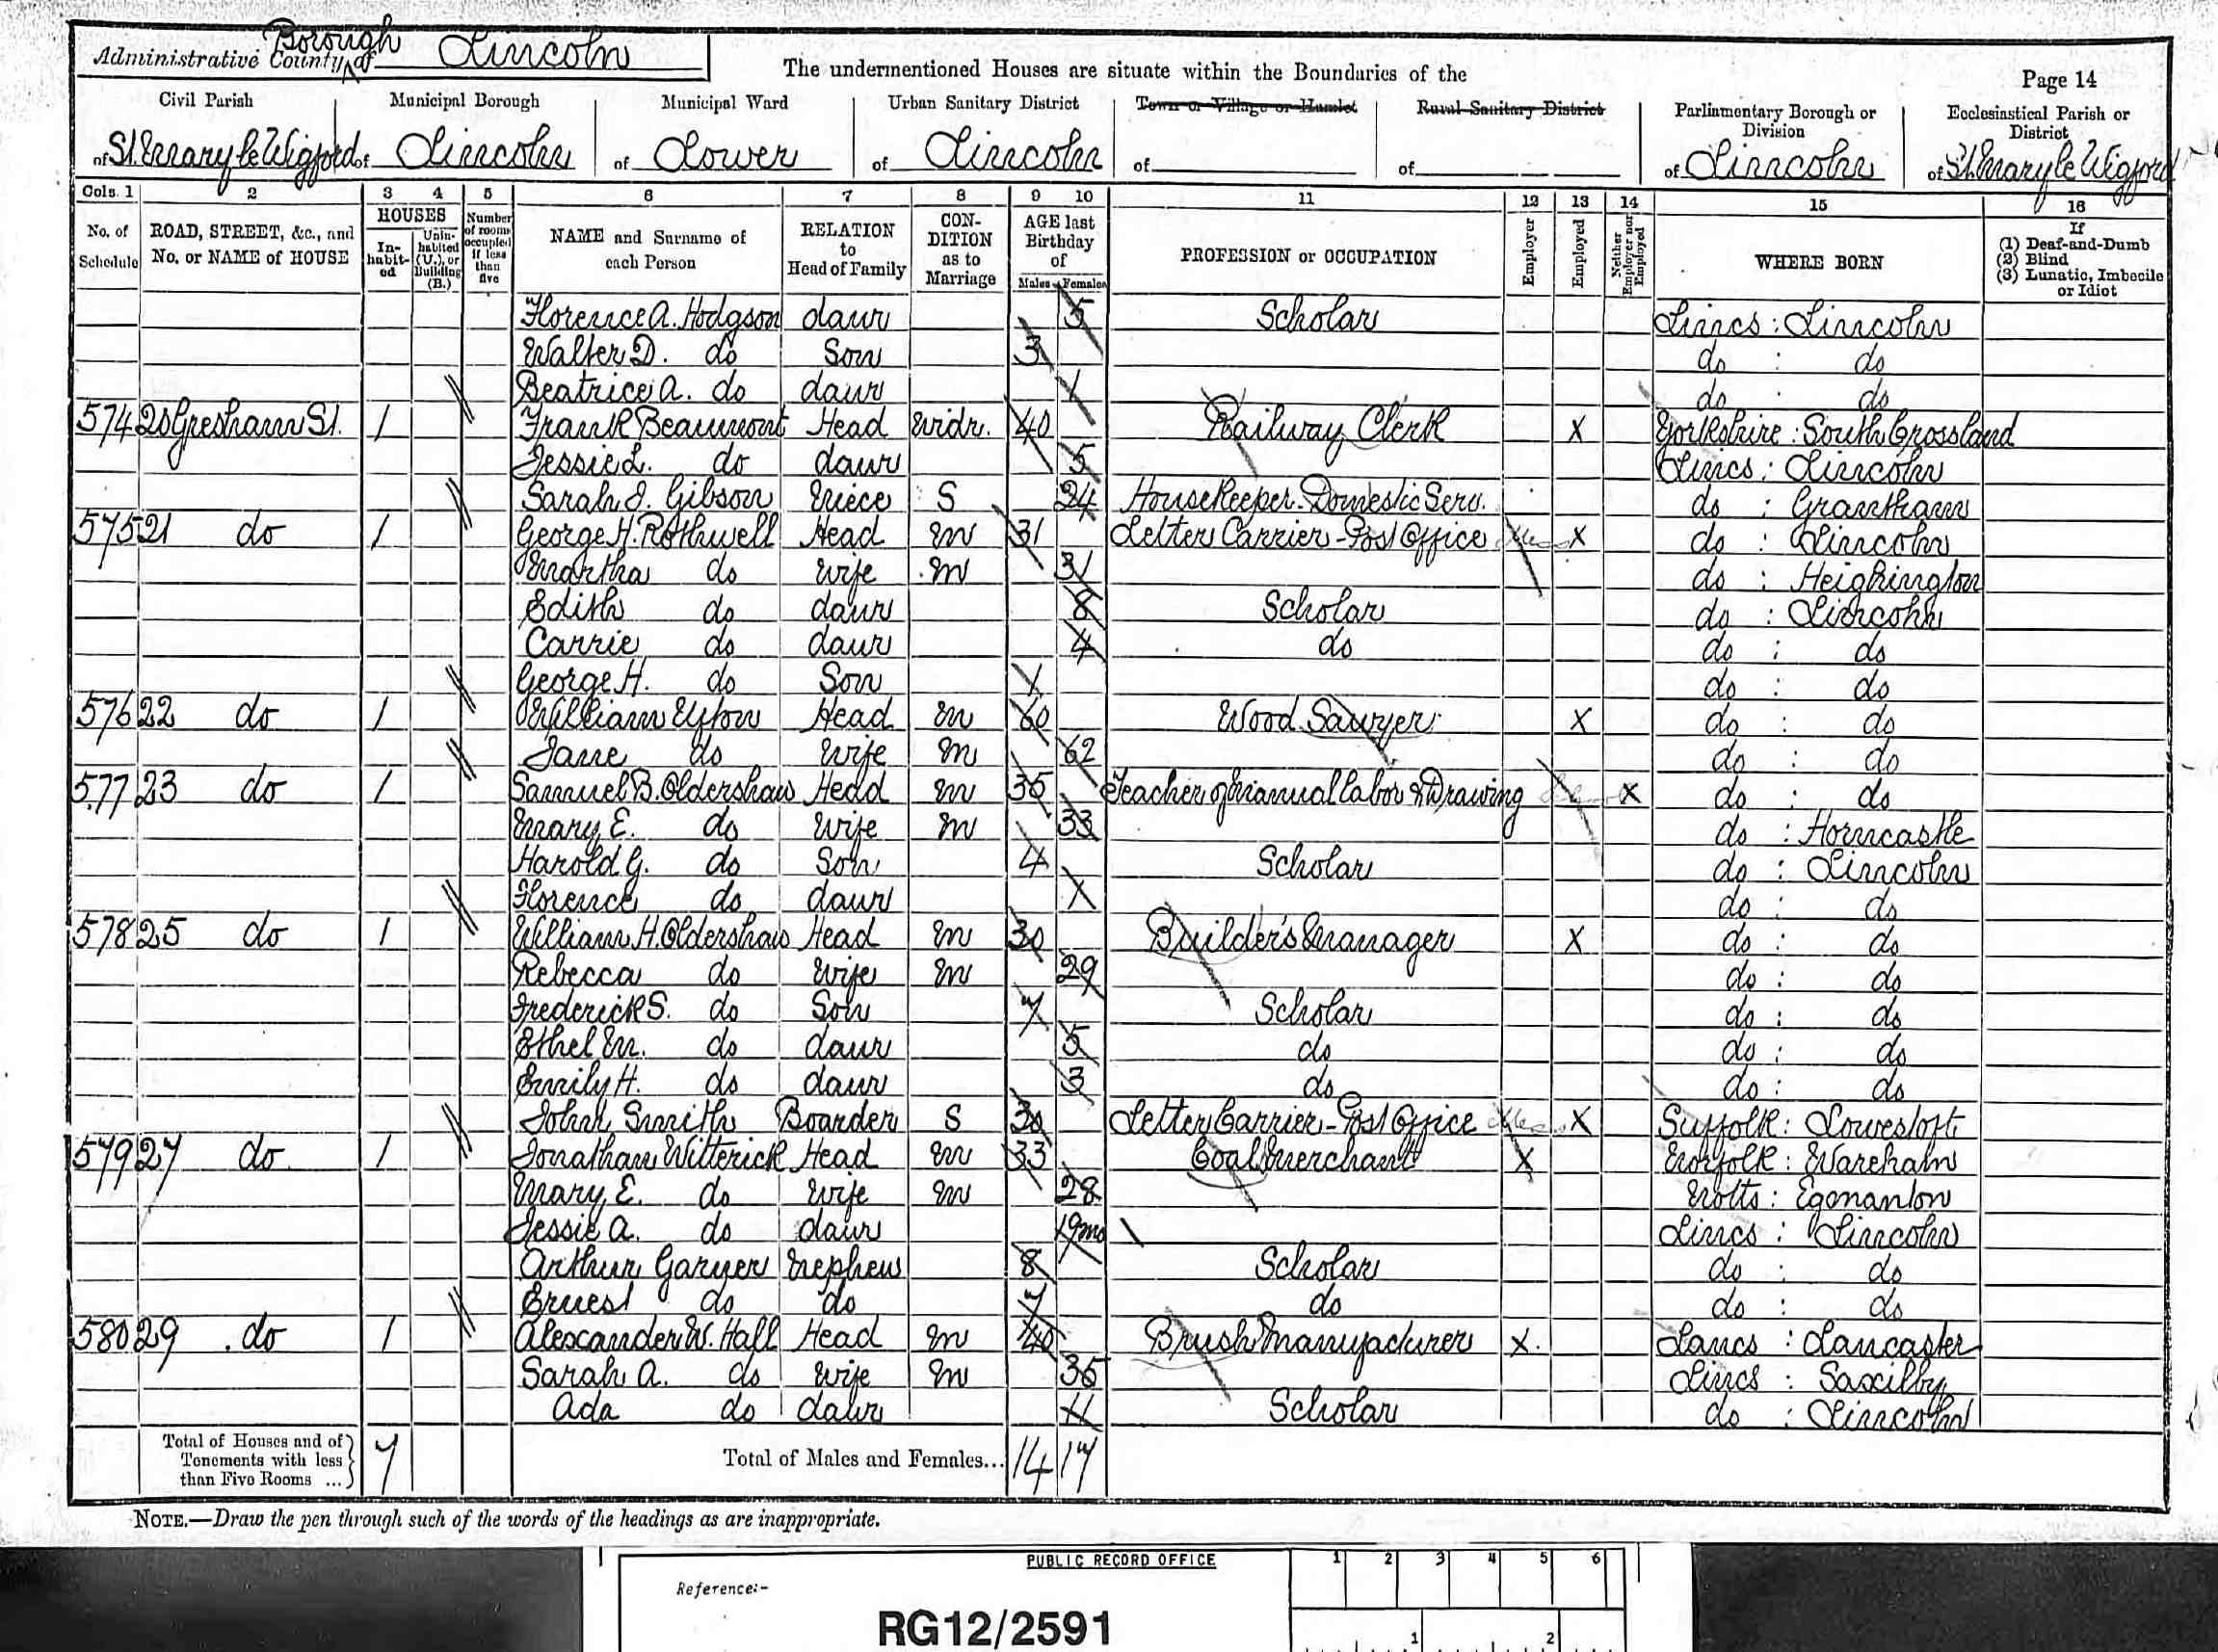 Administrative County of Borough Lincoln
The undermentioned Houses are situate within the Boundaries of the
Page 14
Civil Parish Municipal Borough Municipal Ward Urban Sanitary District Town or Village or Hamlet Rural Sanitary District Parliamentary Borough or Division Ecclesiastical Parish or District
of St. Mary le Wigford of Lincoln of Lower of Lincoln of of of Lincoln of St. Mary le Wigford
Cols. 1 2 3 4 5 6 7 8 9 10 11 12 13 14 15 16
No. of Schedule
ROAD, STREET, &c., and No. or NAME of HOUSE
HOUSES
In-habit-ed
Unin-habited (U.), or Building (B.)
Number of rooms occupied if less than five
NAME and Surname of each Person
RELATION to Head of Family
CON-DITION as to Marriage
AGE last Birthday of
Males Females
PROFESSION or OCCUPATION
Employer
Employed
Neither Employer nor Employed
WHERE BORN
If
(1) Deaf-and-Dumb
(2) Blind
(3) Lunatic, Imbecile or Idiot
Florence A. Hodgson daur 5 Scholar Lincs : Lincoln
Walter D. do Son 3 do : do
Beatrice A. do daur 1 do : do
574 20 Gresham St. 1 Frank Beaumont Head Widr. 40 Railway Clerk X Yorkshire : South Crossland
Jessie L. do daur 5 Lincs : Lincoln
Sarah J. Gibson Niece S 24 HouseKeeper-Domestic Serv. do : Grantham
575 21 do 1 George H. Rothwell Head M 31 Letter Carrier - Post Office X do : Lincoln
Martha do Wife M 31 do : Heighington
Edith do daur 8 Scholar do : Lincoln
Carrie do daur 4 do do : do
George H. do Son 1 do : do
576 22 do 1 William Elston Head M 60 Wood Sawyer X do : do
Jane do Wife M 62 do : do
577 23 do 1 Samuel B. Oldershaw Head M 35 Teacher of Manual labor & Drawing X do : do
Mary E. do Wife M 33 do : Horncastle
Harold G. do Son 4 Scholar do : Lincoln
Florence do daur 1 do : do
578 25 do 1 William H. Oldershaw Head M 30 Builder's Manager X do : do
Rebecca do Wife M 29 do : do
Frederick S. do Son 7 Scholar do : do
Ethel M. do daur 5 do do : do
Emily H. do daur 3 do do : do
John Smith Boarder S 30 Letter Carrier - Post Office X Suffolk : Lowestoft
579 27 do 1 Jonathan Witterick Head M 33 Coal Merchant X Norfolk : Wareham
Mary E. do Wife M 28 Notts : Egmanton
Jessie A. do daur 9mo Lincs : Lincoln
Arthur Garner Nephew 8 Scholar do : do
Ernest do do 7 do do : do
580 29 do 1 Alexander W. Hall Head M 40 Brush Manufacturer X Lancs : Lancaster
Sarah A. do Wife M 35 Lincs : Saxilby
Ada do daur 11 Scholar do : Lincoln
Total of Houses and of Tenements with less than Five Rooms ... 7 Total of Males and Females... 14 17
NOTE.—Draw the pen through such of the words of the headings as are inappropriate.
PUBLIC RECORD OFFICE 1 2 3 4 5 6
Reference:-
RG12/2591
1 2